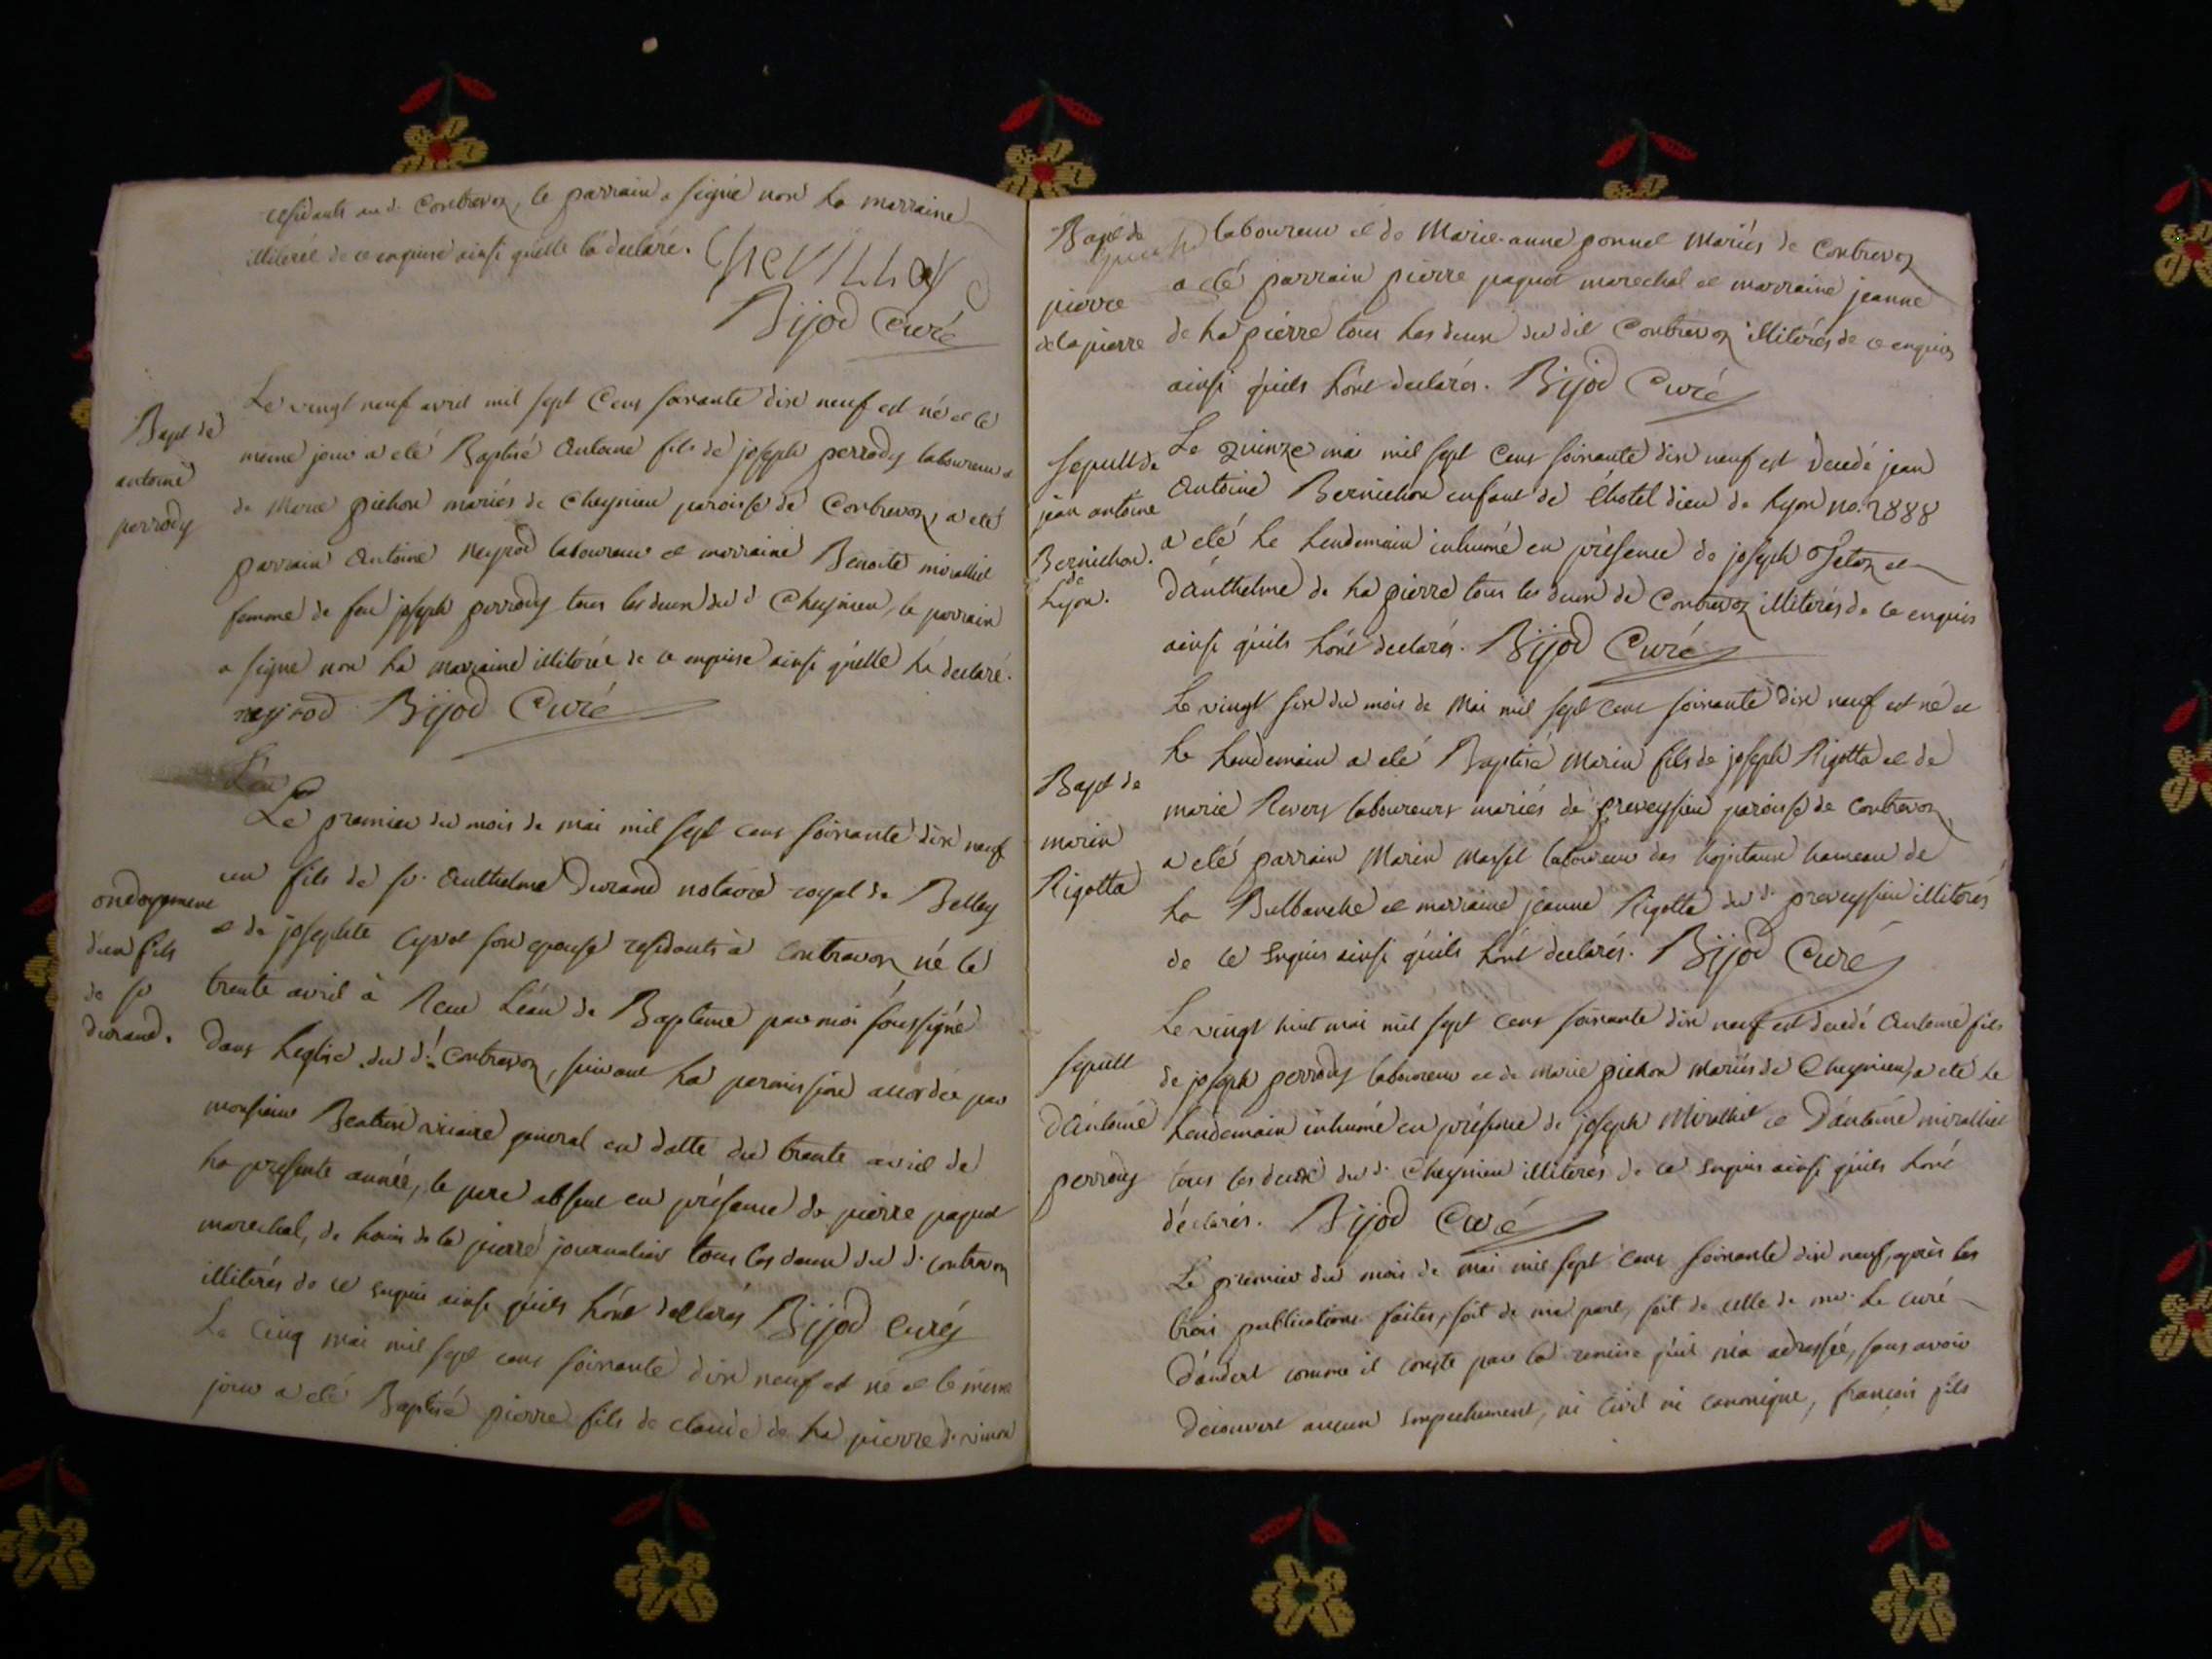 residants au d. Contrevoz, le parrain a signé non la marraine
illiterée de ce enquise ainsi quelle la declaré.
CheVILLOY
Bijod Curé
Bapt de
antoine
perrody
Le vingt neuf avril mil sept Cens soixante dix neuf est né et le
même jour a eté Baptisé Antoine fils de joseph perrody laboureur et
de Marie pichon mariés de Cheynieu paroisse de Contrevoz, a eté
parrain Antoine Neyrod laboureur et marraine Benoite miralliet
femme de feu joseph perrody tous les deux du d. Cheynieu, le parrain
a signé non la marraine illiterée de ce enquise ainsi quelle la declaré.
neyrod Bijod Curé
ondoyement
d'un fils
de sr
durand.
Le premier du mois de mai mil sept cens soixante dix neuf
un fils de sr. Anthelme Durand notaire royal de Belley
et de josephte son epouse residants à Contrevoz né le
trente avril à Reçu Léau de Baptême par moi soussigné
dans Leglise du dt. Contrevoz, suivant La permission accordée par
monsieur vicaire general en datte du trente avril de
La presente année, le pere absent en présence de pierre paquet
marechal, de de la pierre journalier tous les deux du d. contrevoz
illiterés de ce enquis ainsi quils Lónt declarés Bijod Curé
Le Cinq mai mil sept cens soixante dix neuf est né et le même
jour a eté Baptisé pierre fils de claude de La pierre
Bapt de
pierre
de la pierre
laboureur et de Marie-anne ponnet Mariés de Contrevoz
a eté parrain pierre paquet marechal et marraine jeanne
de La pierre tous Les deux du dit Contrevoz illiterés de ce enquis
ainsi quils Lónt declarés. Bijod Curé
sepult de
jean antoine
Bernichon.
de
Lyon.
Le Quinze mai mil sept Cens soixante dix neuf est decedé jean
Antoine Bernichon enfant de Lhotel dieu de Lyon no. 2888
a eté Le Lendemain inhumé en présence de joseph et
d'Anthelme de La pierre tous les deux de Contrevoz illiterés de ce enquis
ainsi quils Lónt declarés. Bijod Curé
Bapt de
marin
Rigotta
Le vingt six du mois de Mai mil sept cens soixante dix neuf est né et
Le Lendemain a eté Baptisé Marin fils de joseph Rigotta et de
marie Revers laboureurs mariés de preveyssieu paroisse de Contrevoz
a eté parrain Marin Masset laboureur des hopitaux hameau de
La Bulbanche et marraine jeanne Rigotta du d. preveyssieu illiterés
de ce enquis ainsi quils Lónt declarés. Bijod Curé
sepult
d'Antoine
perrody
Le vingt huit mai mil sept cens soixante dix neuf est decedé Antoine fils
de joseph perrody laboureur et de Marie pichon Mariés de Cheynieu, a eté le
Lendemain inhumé en présence de joseph Miralliet et D'antoine miralliet
tous les deux du d. Cheynieu illiterés de ce enquis ainsi quils Lónt
déclarés. Bijod Curé
Le premier du mois de mai mil sept cens soixante dix neuf, après les
trois publications faites, soit de ma part, soit de celle de mr. Le curé
d'andert comme il conste par la remise qu'il m'a adressée, sans avoir
découvert aucun empechement, ni civil ni canonique, françois fils